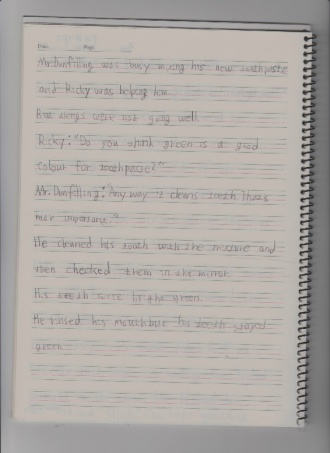 Date Page
Mr. Dunfilling was busy mixing his new toothpaste
and Ricky was helping him.
But things were not going well.
Ricky: "Do you think green is a good
colour for toothpaste?"
Mr. Dunfilling: "Any way it cleans teeth thats
mor important."
He cleaned his tooth with the mixture and
then checked them in the mirror.
His teeth were bright green.
He rinsed his mouth but his teeth stayed
green.